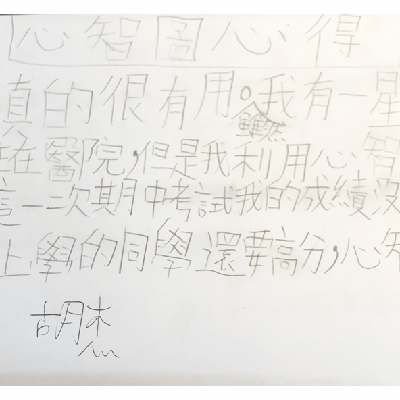 心智圖心得
真的很有用。雖然我有一星
在醫院,但是我利用心智
這一次期中考試我的成績沒
上學的同學還要高分,心智
胡